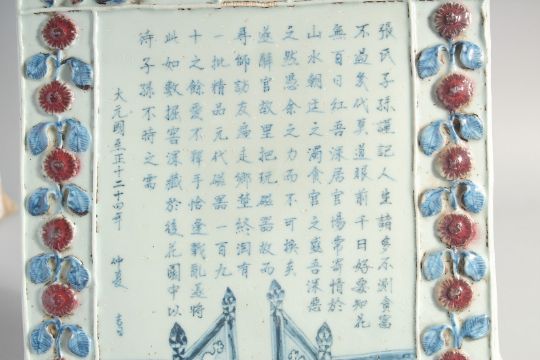 張氏子孫謹記人生諸事不測貪富
不過幾代莫道眼前千日好要知花
無百日紅吾深居官場常寄情於
山水朝廷之濁貪官之腐吾深惡
之然憑余之力而不可挽矣
遂解官故里把玩磁器故而
尋師訪友屢走鄉埜終淘有
一批精品元代磁器一百九
十之餘愛不釋手恰逢戰亂遂將
此如數掘窖深藏於後花園中以
待子孫不時之需
大元國至正十二十四年 仲夏 吉日